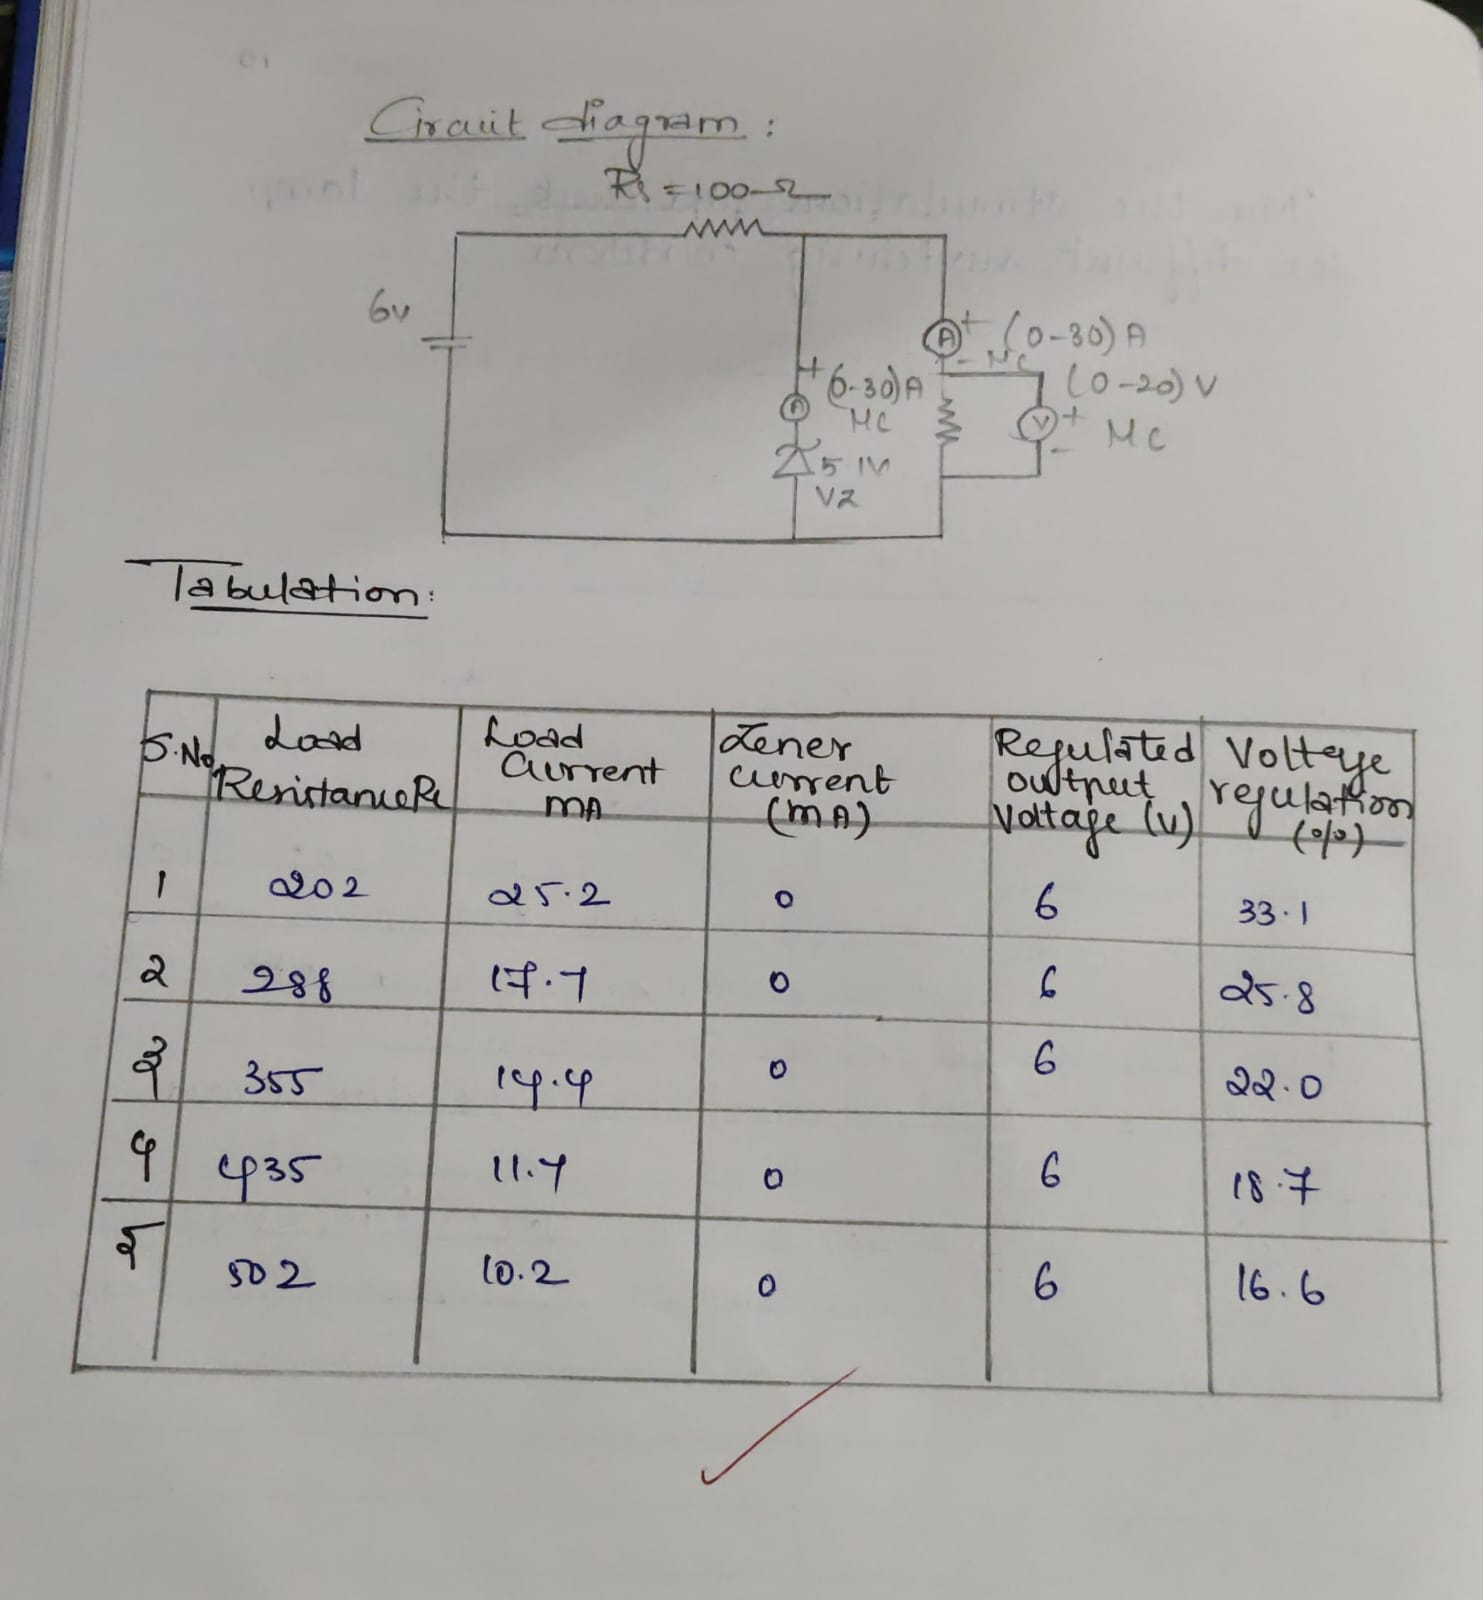 Circuit diagram :
Rs = 100 Ω
6v
A + (0-30) A
- MC
(0-20) V
+ (0-30) A
MC
A
V +
- MC
5.1V
VZ
Tabulation:
S.No Load Resistance RL Load Current mA Zener current (mA) Regulated output Voltage (V) Voltage regulation (%)
1 202 25.2 0 6 33.1
2 288 17.7 0 6 25.8
3 355 14.4 0 6 22.0
4 435 11.7 0 6 18.7
5 502 10.2 0 6 16.6